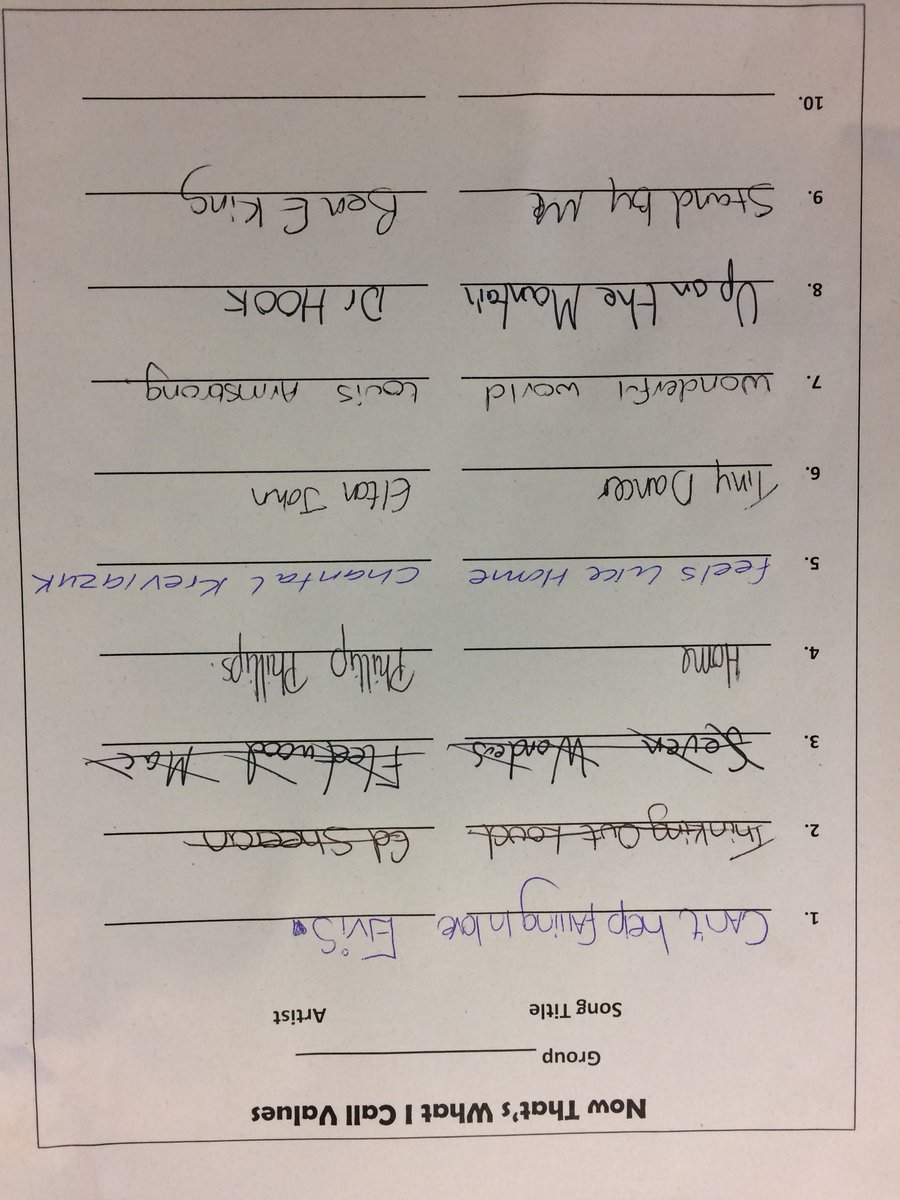 Now That's What I Call Values
Group
Song Title Artist
1. Can't help falling in love Elvis
2. Thinking Out Loud Ed Sheeran
3. Seven Wonders Fleetwood Mac
4. Home Phillip Phillips.
5. feels like Home Chantal Kreviazuk
6. Tiny Dancer Elton John
7. Wonderful world Louis Armstrong.
8. Up on the Mantain Dr HOOK
9. Stand By Me Ben E King
10.